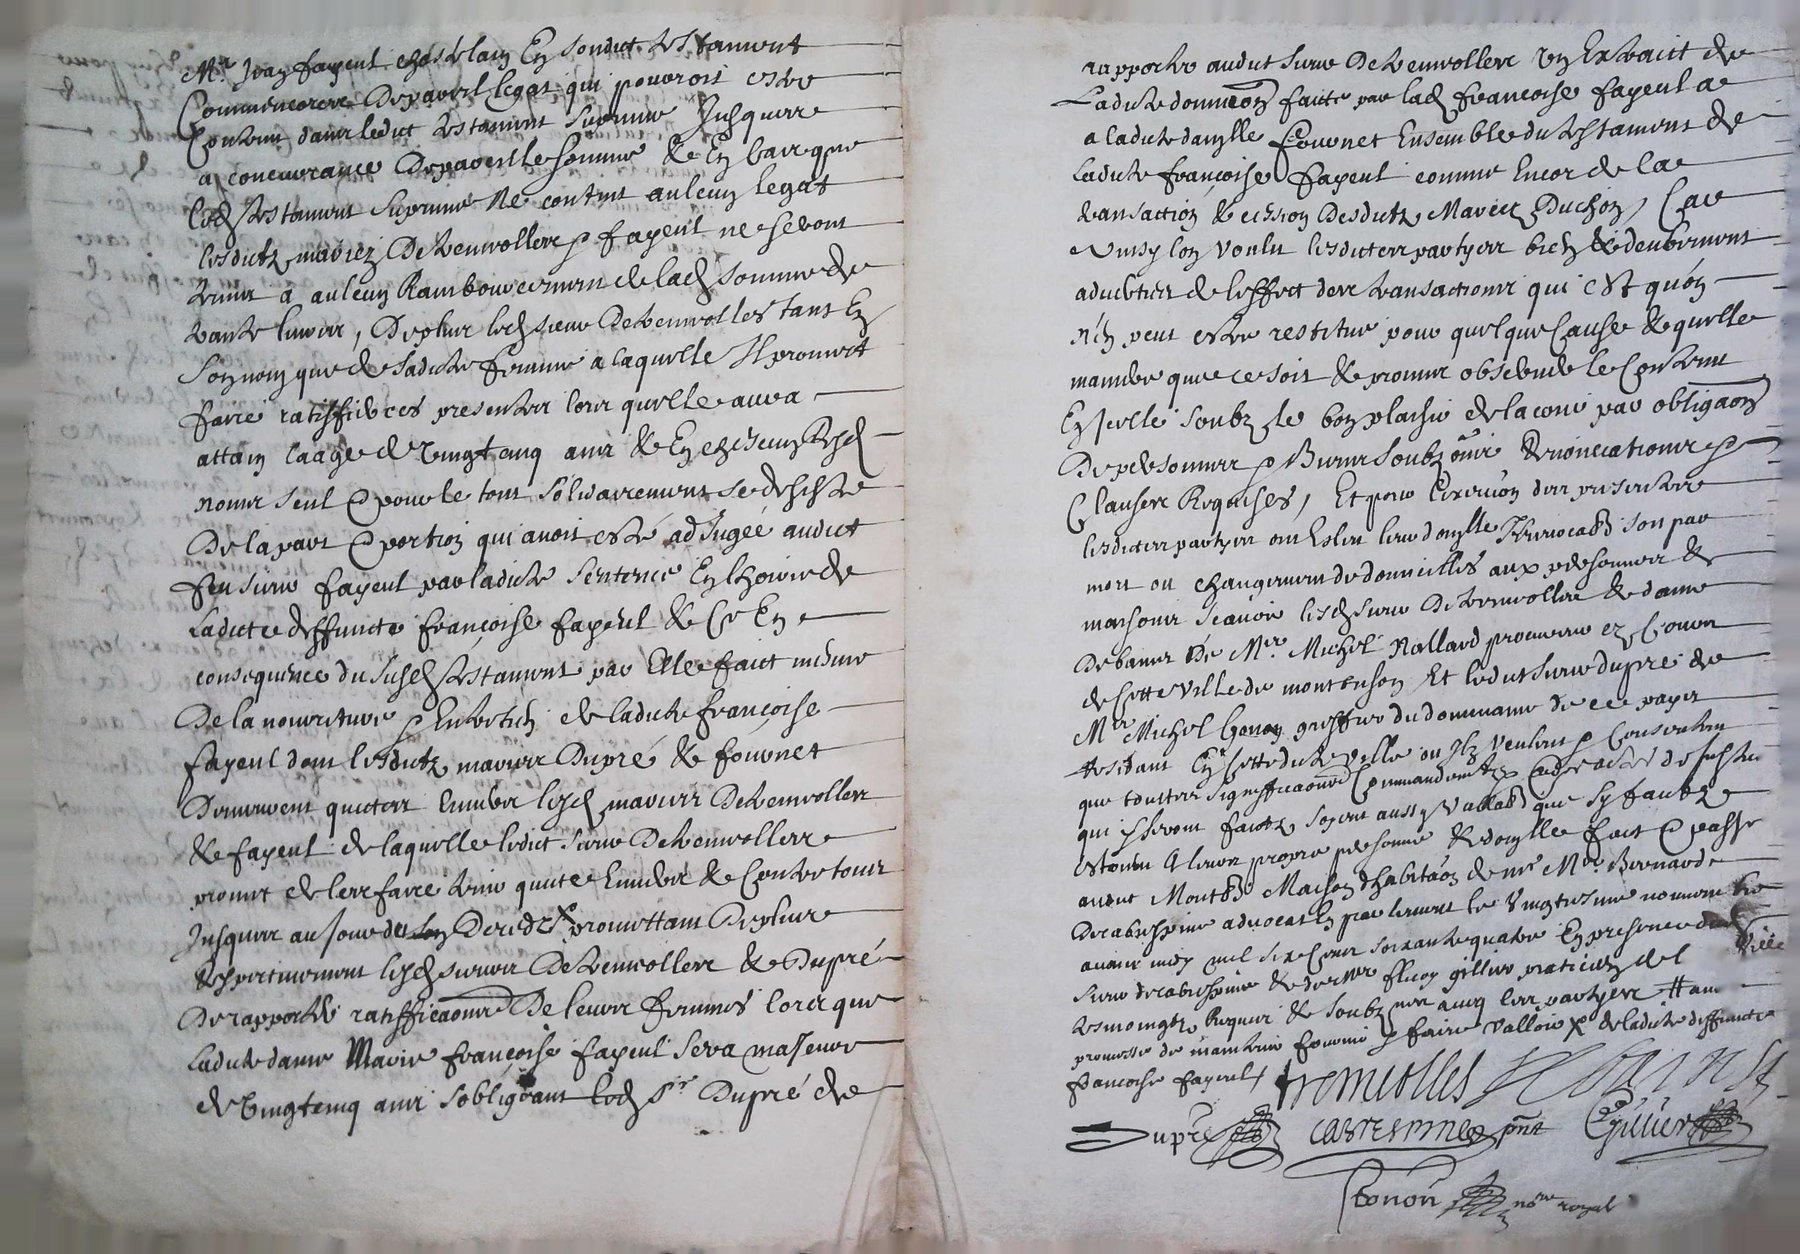 Mr Jean fayeul chastelain En sondict testament
Commencerer Depareil legat qui pouvoit estre
Contenu dans ledict testament suprime Jusques
a concurance Depareille somme & En cas que
led testament suprime Ne contint aulcun legat
lesdictz mariez De tremiollere & fayeul ne seront
tenus a aulcun Rambourcement de lad somme de
trante livres, Deplus led sieur De tremiolles tant En
son nom que de sadicte femme a laquelle Il promect
faire ratiffier ces presentes lors quelle aura
attain laage de vingt cinq ans & En chascun desd
noms seul & pour le tout solidairement se desiste
De la part & portion qui avoit esté adjugée audict
feu sieur fayeul par ladicte sentence En lhoirie de
Ladicte deffuncte françoise fayeul & Ce En
consequence du susd testament par Elle faict mesme
De la nourriture & Entretien de ladicte françoise
fayeul dont lesdictz mariez Dupré & fournet
Demeurent quictes Envers lesd mariez De tremiollere
& fayeul de laquelle ledict sieur De tremiollere
promet de les faire tenir quicte Envers & Contre tous
Jusques au jour de Deredes promettant Deplus
respectivement lesd sieurs De tremiollere & Dupré
De rapporter ratifficaons De leurs femmes lors que
Ladicte dame Marie françoise fayeul sera majeure
de vingt cinq ans sobligeant led Sr Dupré de
rapporter audict sieur De tremiollere un Extraict de
Ladicte donnaon faicte par lad françoise fayeul a
a ladicte damlle fournet Ensemble du testament de
Ladicte françoise fayeul comme Encor de la
transaction & cession Desdictz Mariez Duchon, Car
Ainsy lon voulu lesdictes partyes bien & deubement
adverties de leffect des transactions qui est quon
n'en peut estre restitué pour quelque Cause & quelle
maniere que ce soit & promis observer le Contenu
En Icelle soubz le bon plaisir de la cour par obligaon
De personnes & Biens soubz & renonciations &
Clauses Requises, Et pour lexecuon des presentes
lesdictes partyes on Esleu leur domylle Irrevocable soit par
mort ou changement de domicilles aux personnes &
maisons scavoir lesd sieur De tremiollere & dame
Debanes De Me Michel Rollard procureur ez Cours
de Cette ville de montbrison Et ledict sieur dupré de
Me Michel Gonon greffier du dommaine de ce pays
Residant En Cette dicte ville ou Ilz veulent & Consentent
que touttes significaons Commandementz & autres actes de justice
qui y seront faictz soyent aussy vallables que sy faictz
estoient A leurs propre personne & domylle faict & passé
audict Montbn Maison dhabitaon de me Me Bernard
Decabrespine advocat En parlement le vingtiesme novembre
avant midy mil six Cens soixante quatre En presence dud
sieur decabrespine & de gillier praticien de ville
tesmoingtz Requis & soubznes avec les partyes
promesse de maintenir fournir & faire valloir & de ladicte deffuncte
francoise fayeul
tremiolles
Dupré CABRESPINE pnt Gillier
Gonon nore royal